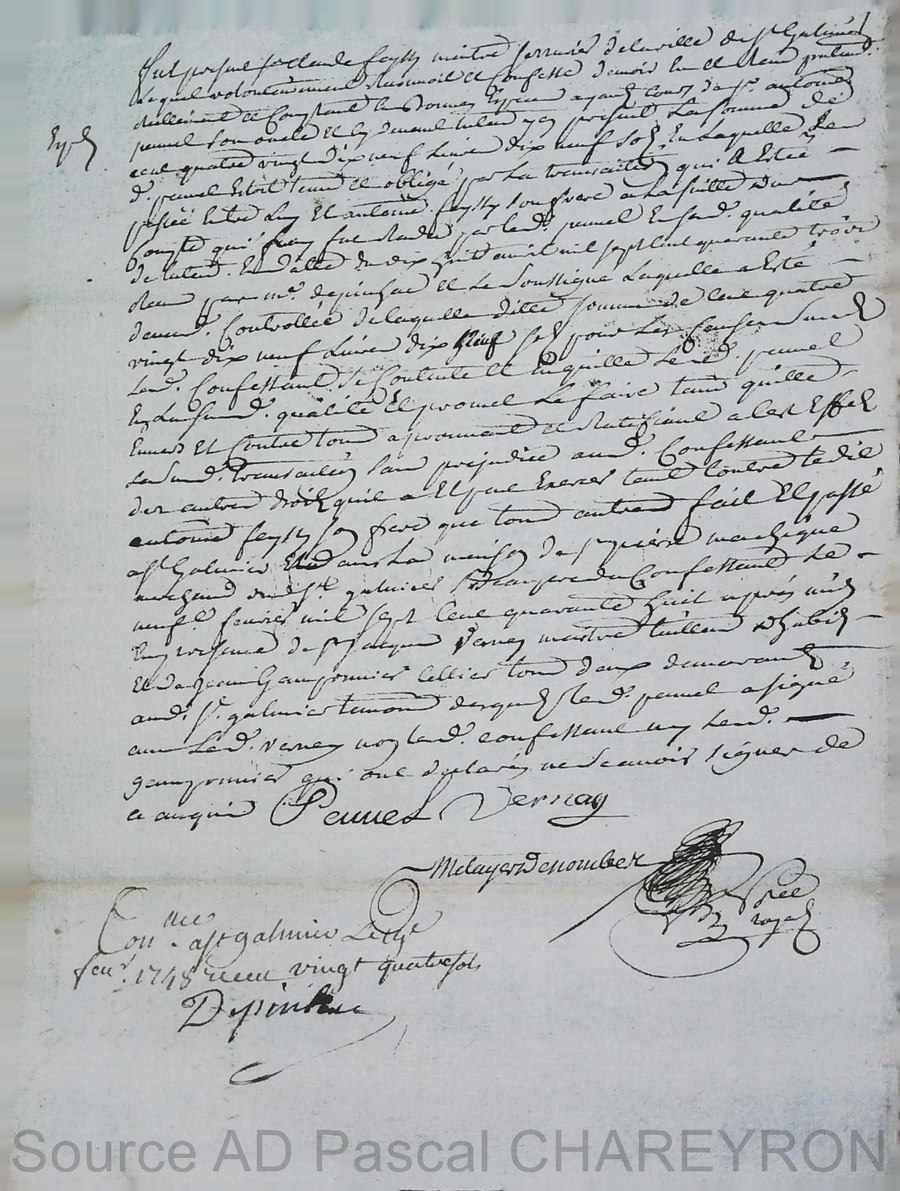 fut present sr claude feysse maitre serrurier de la ville de st Galmier
lequel volontairement reconnoit et confesse d'avoir eu et receu
reellement et comptant en bonnes especes ayant cours de sr antoine
pennel son oncle et cy devant tuteur icy present La somme de
cent quatre vingt dix neuf Livres dix neuf sols En laquelle Led
d. pennel Estoit tenu et obligé par La transaction qui a Esté
Exped
passée Entre Luy Et antoine feysse son frere a la suitte du
compte qui Leur fut Rendu par led. pennel En sad. qualité
de tuteur En datte du dix huit avril mil sept cent quarante trois
Receu par me. depinhac et le soussigné Laquelle a Esté
duement Controllée de laquelle ditte somme de cent quatre
vingt dix neuf Livres dix neuf sols pour Les causes susd.
Led. Confessant se Contente et En quitte Led. pennel
En lad. qualité Et promet Le faire tenir quitte
Envers Et Contre tous approuvant et Ratifiant a cet Effet
La sud. transaction sans prejudice aud. Confessant
des autres droits quil a Et peut Exercer tant Contre ledit
antoine feysse son frere que tous autres fait Et passé
a st Galmier dans La maison de sr pierre
marchand dud st galmier Beaupere du Confessant Le
neufe. fevrier mil sept cent quarante huit apres midy
En presence de sr jacques Verney maitre tailleur d'habits
Et de jean Gamponnier cellier tous deux demeurants
aud. st. galmier temoins desquels led. pennel a signé
avec Led. Verney non led. confessant ny led.
gamponnier qui ont declaré ne scavoir signer de
ce enquis Pennel Vernay
Metayer Denombret
nre royal
Connllé a st galmier Le
feu. 1748 receu vingt quatre sols
Depinhac
Source AD Pascal CHAREYRON